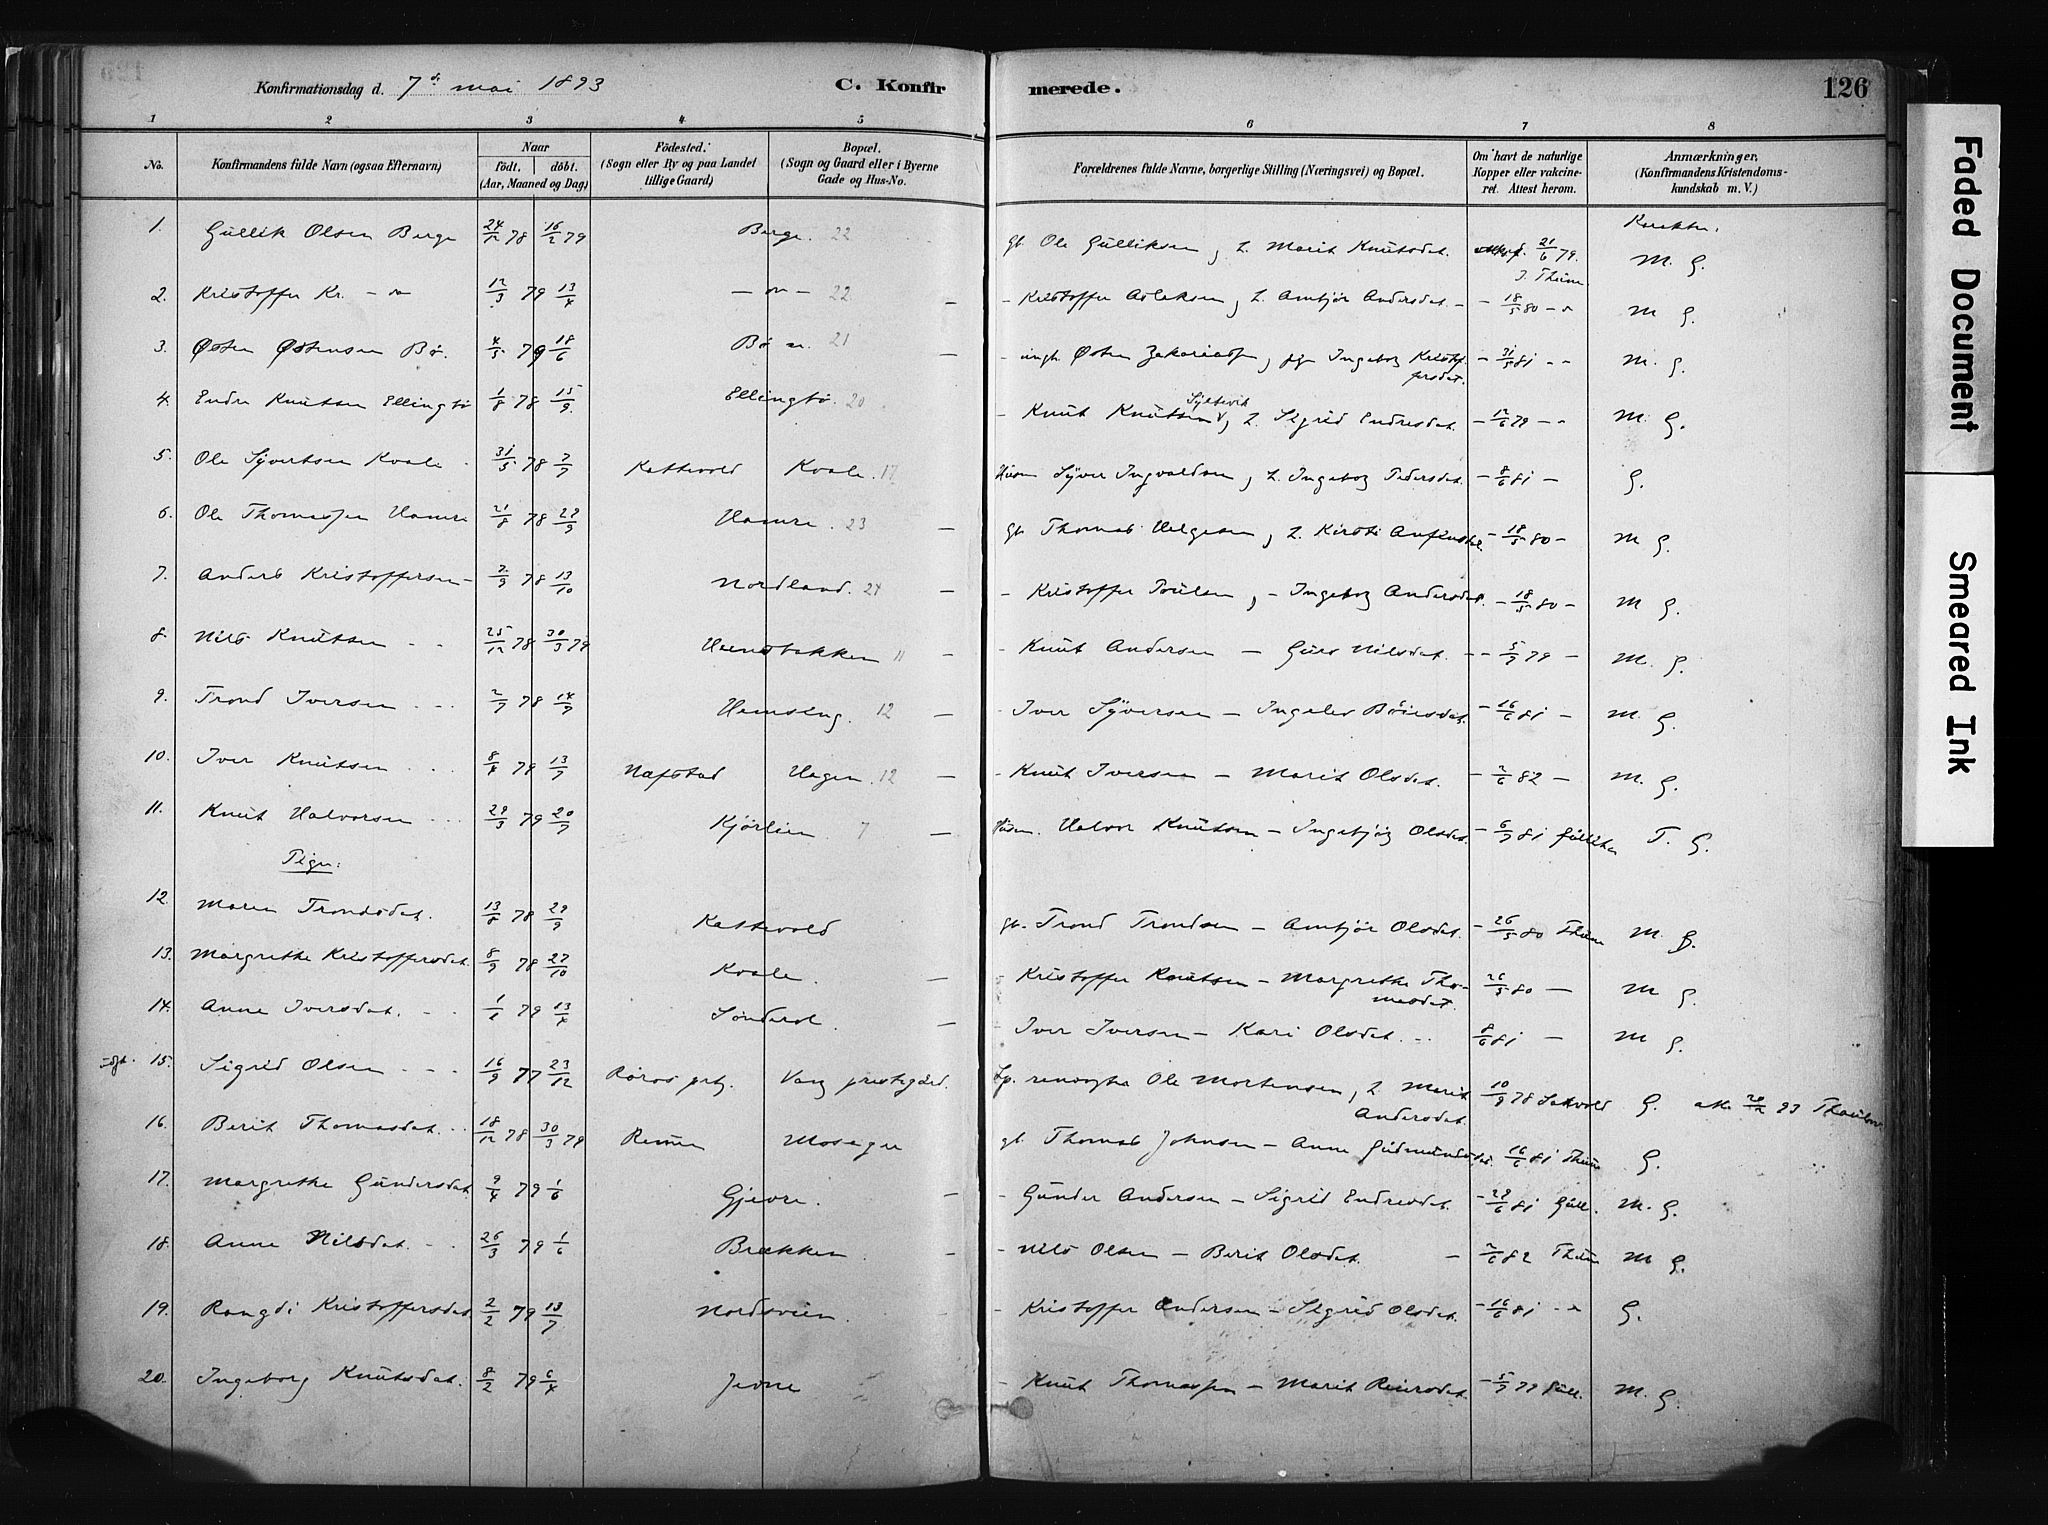 Konfirmationsdag d. 7de mai 1893 C. Konfirmerede. 126
1 2 3 4 5 6 7 8
No. Konfirmandens fulde Navn (ogsaa Efternavn) Naar födt. döbt. (Aar, Maaned og Dag) Födested. (Sogn eller By og paa Landet tillige Gaard) Bopæl. (Sogn og Gaard eller i Byerne Gade og Hus-No. Forældrenes fulde Navne, borgerlige Stilling (Næringsvei) og Bopæl. Om havt de naturlige Kopper eller vakcineret. Attest herom. Anmærkninger, (Konfirmandens Kristendomskundskab m. V.)
Karakter.
1. Gullik Olsen Berge 24/12 78 16/2 79 Berge. 22 gb. Ole Gulliksen, h. Marit Knutsdat. 21/6 79. J. Thune M. G.
2. Kristoffer Kr. - " 12/3 79 13/4 - " - 22 - - Kristoffer Aslaksen, h. Ambjør Andersdat. - - 18/5 80 - " M G.
3. Østen Østensen Bø. 4/5 79 18/6 Bø 21 - - ungk. Østen Zakariasen, pige Ingeborg Kristoffersdat. - 31/5 81 - - M. G.
4. Endre Knutsen Ellingbø 1/8 78 15/9 Ellingbø. 20 - Knut Knutsen Syltevik, h. Sigrid Endresdat. - 12/6 79 - - M. G.
5. Ole Syvertsen Kvale. 31/5 78 7/7 Kattevold Kvale. 17 Husm. Syver Ingvaldsen, h. Ingeborg Pedersdat. - 8/6 81 - G.
6. Ole Thomassen Hamre 21/8 78 22/9 Hamre. 23 - gb. Thomas Helgesen, h. Kirsti Anfinsdat. - 18/5 80 - M G.
7. Anders Kristoffersen - 2/9 78 13/10 Nordland. 24 - - Kristoffer Poulsen, - Ingeborg Andersdat. - 18/5 80 - M G.
8. Nils Knutsen - - 25/12 78 30/3 79 Hensbakken 11 - - Knut Andersen - Guro Nilsdat. - - 5/7 79 - M. G.
9. Trond Iversen - - - 2/7 78 14/7 Hemseng. 12 - - Iver Syversen - Ingelev Bøiesdat. - 16/6 81 - M. G.
10. Iver Knutsen - - - 8/4 79 13/7 Næfstad Hagen. 12 - - Knut Iversen - Marit Olsdat. - 2/6 82 - M. G.
11. Knut Halvorsen - - - 29/3 79 20/7 Kjørlien. 7 - Husm. Halvor Knutsen - Ingebjørg Olsdat. - 6/7 81 T. G.
Piger:
12. Maren Trondsdat. 13/8 78 29/9 Kattevold gb. Trond Trondsen - Ambjør Olsdat. - 26/5 80 Thune M. G.
13. Margrethe Kristoffersdat. 8/9 78 27/10 Kvale. - - Kristoffer Knutsen - Margrethe Thomasdat. 26/5 80 - M G.
14. Anne Iversdat. - - 1/1 79 13/4 Sønderol. - - Iver Iversen - Kari Olsdat. - - 8/6 81 - M G.
15. Sigrid Olsen - - - 16/9 77 23/12 Røros prg. Vang prestegård. Ole Mortensen, h. Marit Andersdat. 10/9 78 G.
16. Berit Thomasdat. - - 18/12 78 30/3 79 Remme Mosager gb. Thomas Johnsen - Anne Gudmundsdat. 16/6 81 Thune G.
17. Margrethe Gundersdat. 9/4 79 1/6 Gjevre. - - Gunder Andersen - Sigrid Endresdat. - 29/6 81 Gull. M. G.
18. Anne Nilsdat. - - 26/3 79 1/6 Brækken. - - Nils Olsen - Berit Olsdat. - 2/6 82 Thune M G.
19. Rangdi Kristoffersdat. 2/2 79 13/7 Nordsveen. - Kristoffer Andersen - Sigrid Olsdat. - 16/6 81 - " G.
20. Ingeborg Knutsdat. 8/2 79 6/4 Jevne - Knut Thomassen - Marit Reiersdat. - 5/7 79 Gull. M. G.
Faded Document
Smeared Ink